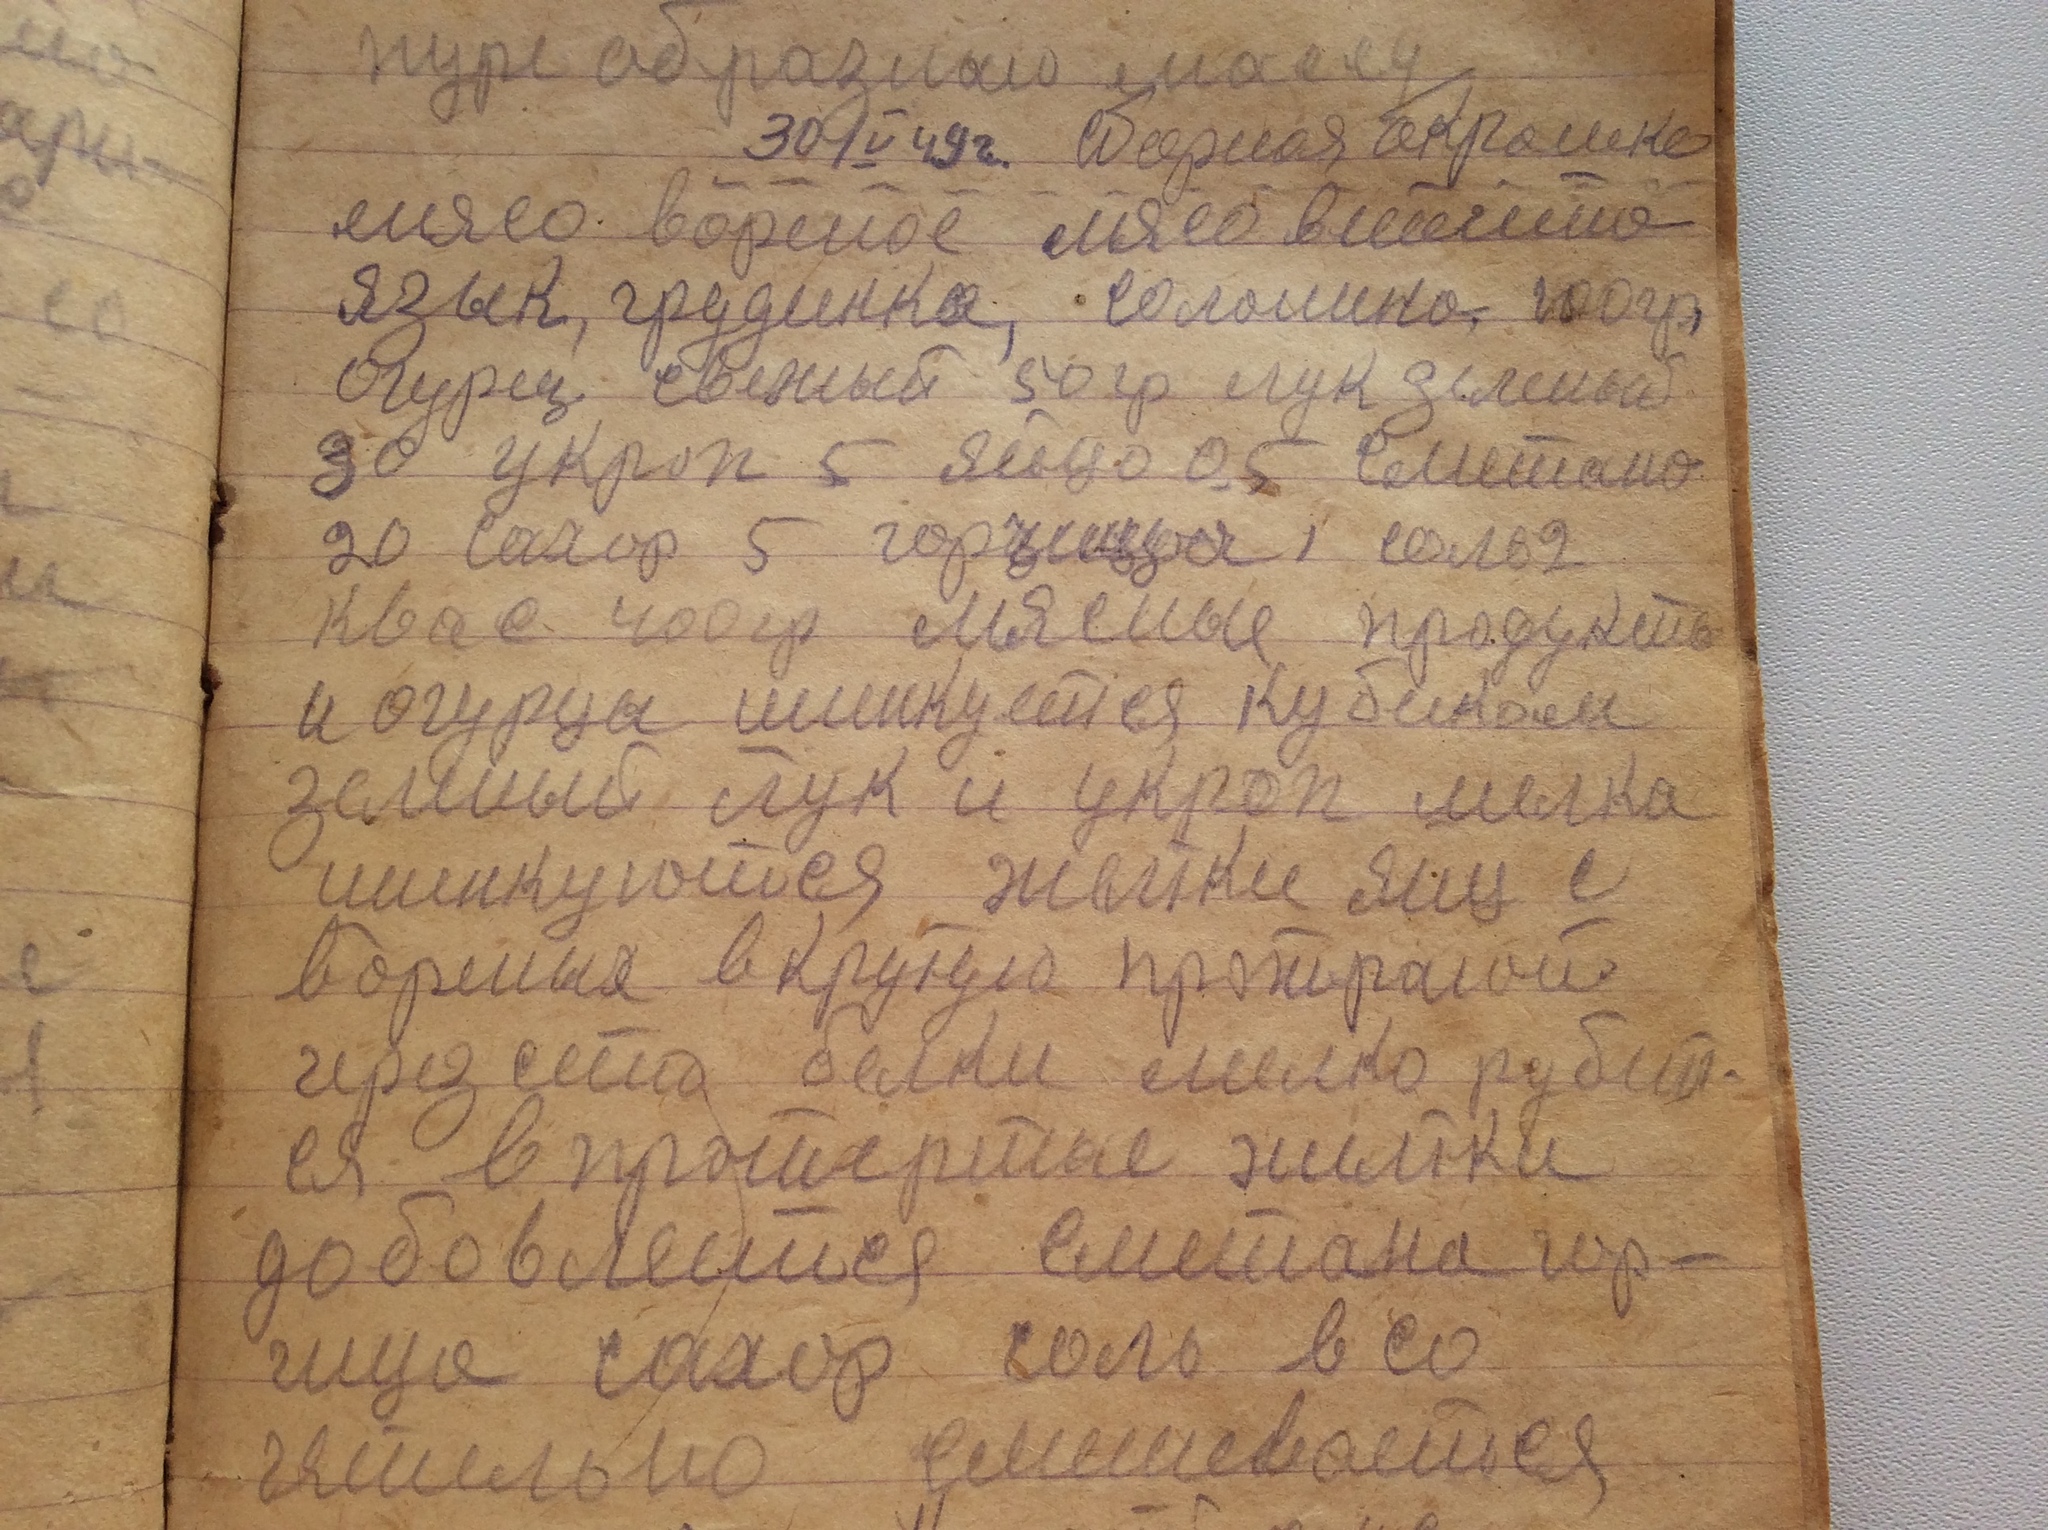 пурe образную массу
30/V 49г. Сборная окрошка
мясо вареное мясо
язык, грудинка, солонина, 100гр,
огурец свежый 50гр лук зеленый
30 укроп 5 яйцо 0,5 сметано
20 сахор 5 горчица 1 соль 2
квас 400гр мясные продукты
и огурцы шинкуется кубикам
зеленый лук и укроп мелка
шинкуются желтки яиц с
вореных вкрутую протирают
через сито белки мелко рубит-
ся в протертые желтки
добовляется сметана гор-
чица сахор соль всо
тятельно смешевается